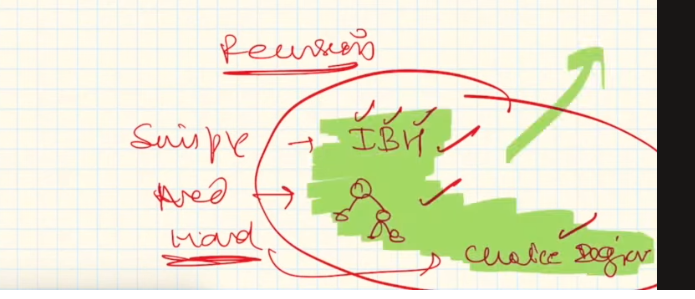 Recursion
Simple → IBH
Med →
Hard
Choice Diagram